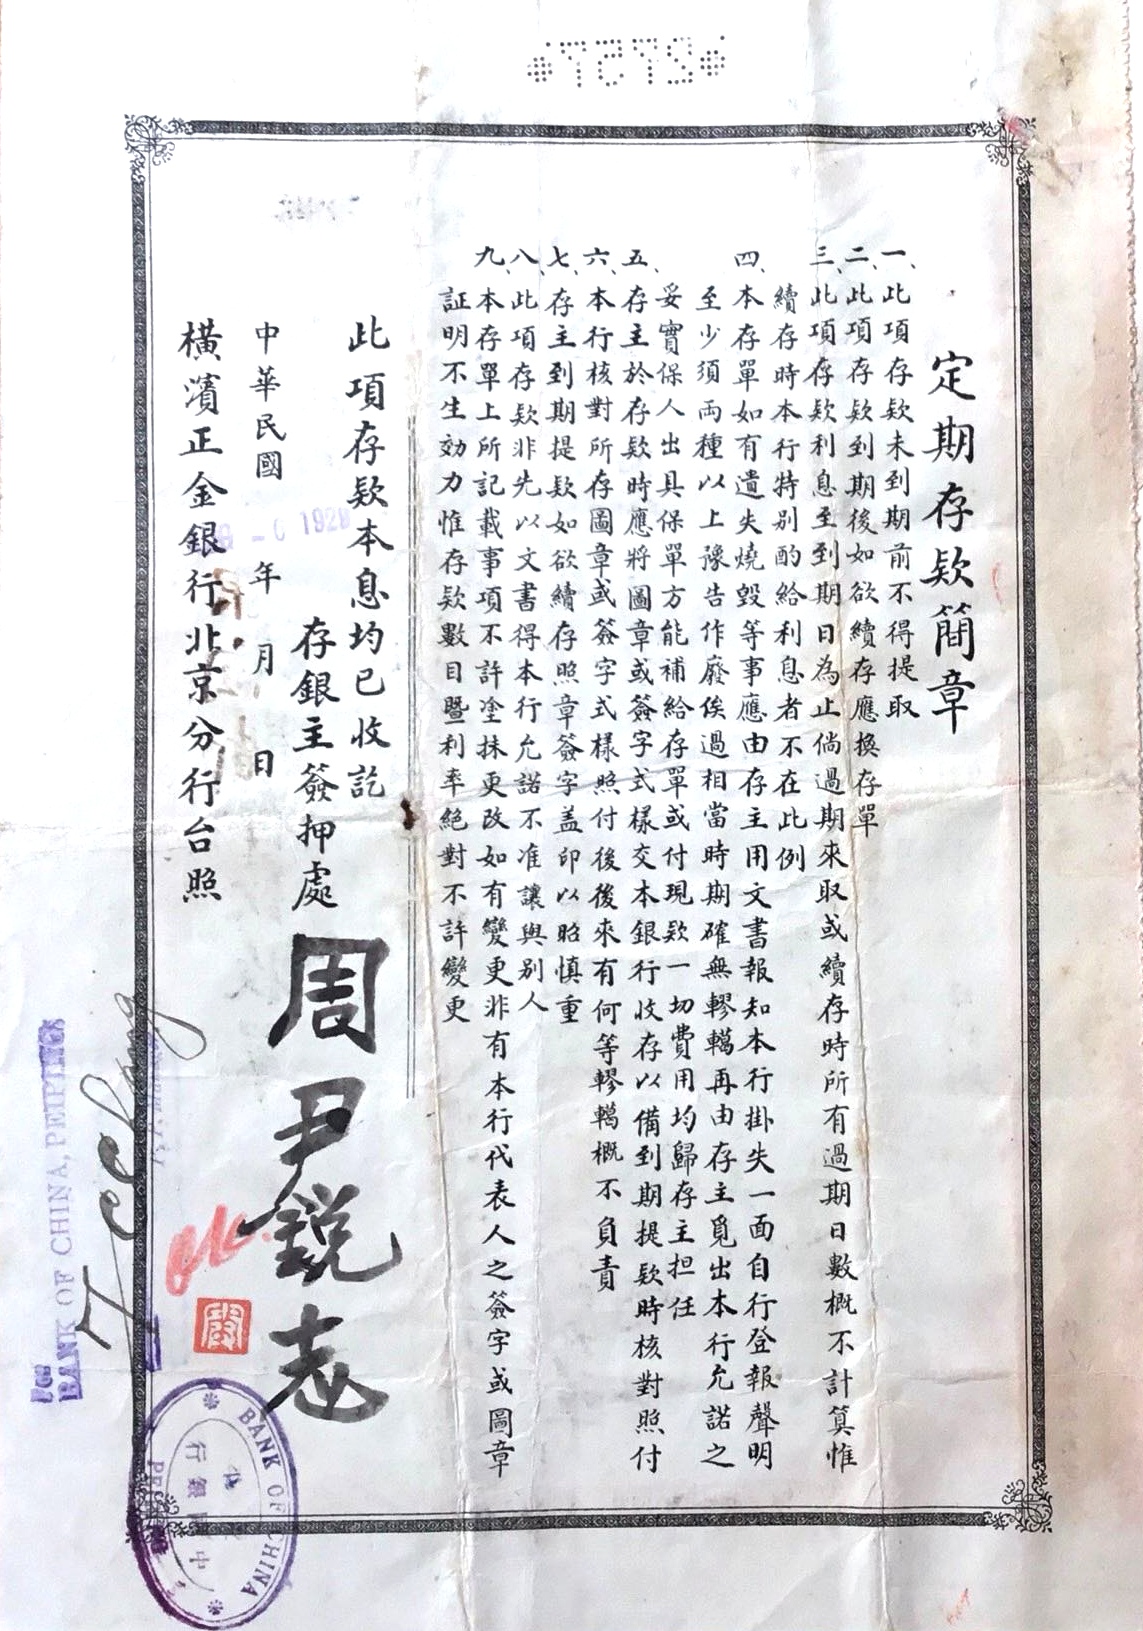 定期存欵簡章
一、此項存欵未到期前不得提取
二、此項存欵到期後如欲續存應換存單
三、此項存欵利息至到期日為止倘過期來取或續存時所有過期日數概不計算惟
續存時本行特別酌給利息者不在此例
四、本存單如有遺失燒毀等事應由存主用文書報知本行掛失一面自行登報聲明
至少須両種以上豫告作廢俟過相當時期確無轇轕再由存主覓出本行允諾之
妥實保人出具保單方能補給存單或付現欵一切費用均歸存主担任
五、存主於存欵時應將圖章或簽字式樣交本銀行收存以備到期提欵時核對照付
六、本行核對所存圖章或簽字式樣照付後後來有何等轇轕概不負責
七、存主到期提欵如欲續存照章簽字盖印以昭慎重
八、此項存欵非先以文書得本行允諾不准讓與別人
九、本存單上所記載事項不許塗抹更改如有變更非有本行代表人之簽字或圖章
証明不生効力惟存欵數目暨利率絕對不許變更
此項存欵本息均已收訖
存銀主簽押處
周尹鋭志
中華民國 年 月 日
1929
橫濱正金銀行北京分行台照
OK.
FOR
BANK OF CHINA, PEIPING
BANK OF CHINA
中國銀行